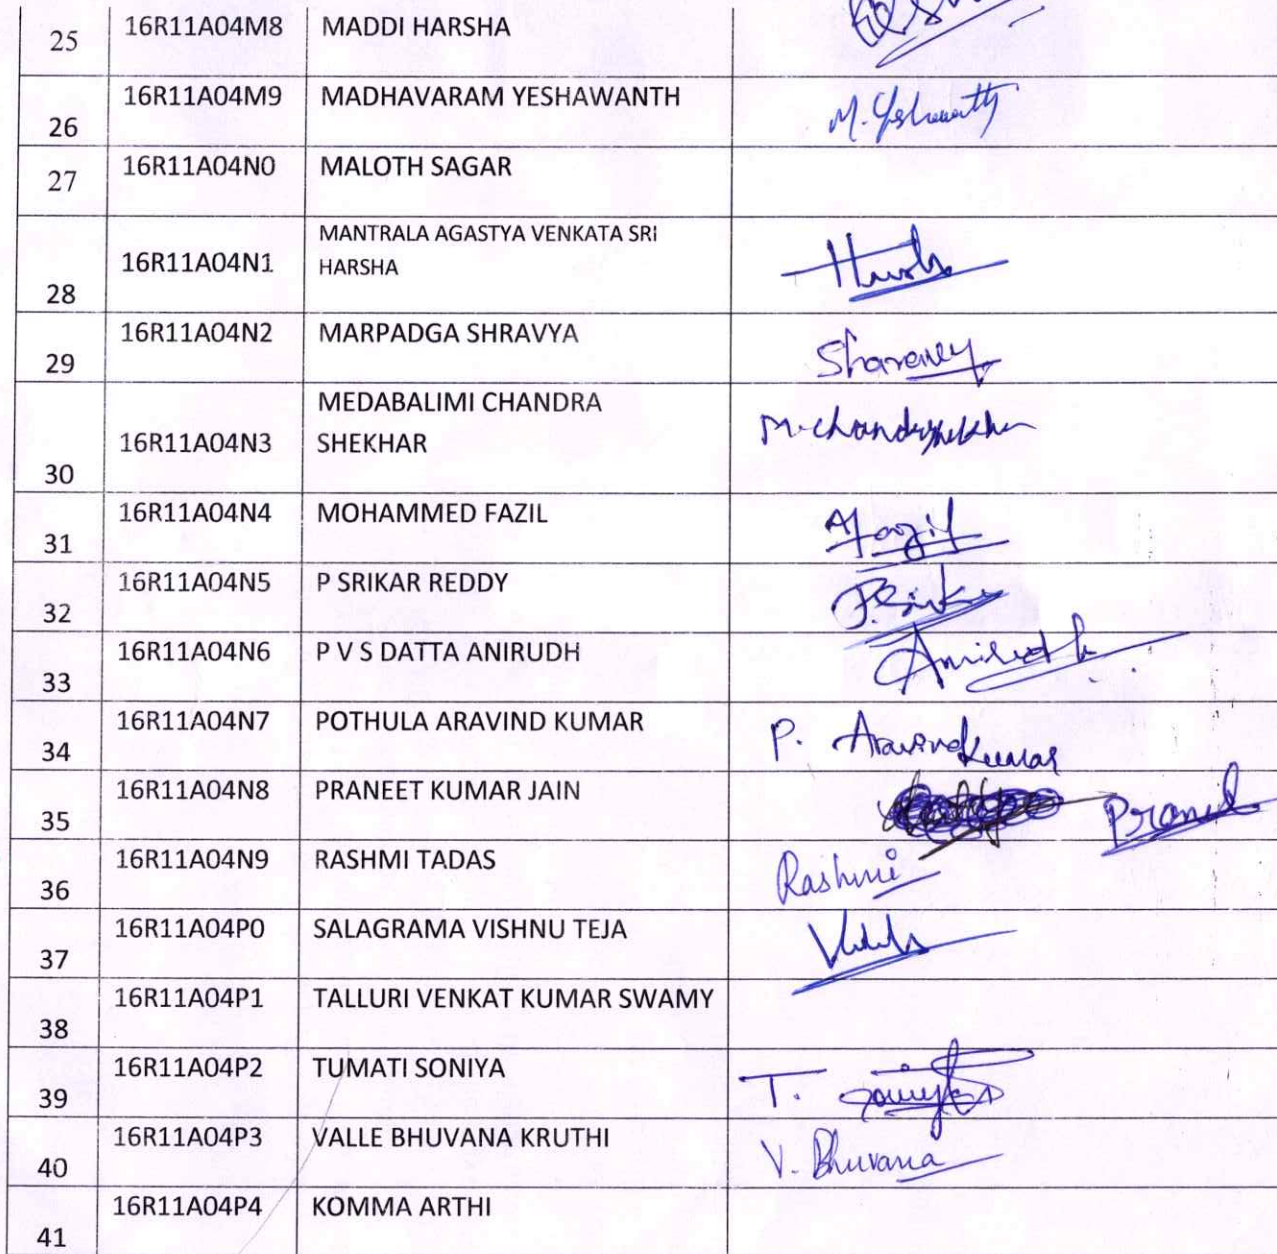 25 16R11A04M8 MADDI HARSHA
26 16R11A04M9 MADHAVARAM YESHAWANTH M. Yeshwanth
27 16R11A04N0 MALOTH SAGAR
28 16R11A04N1 MANTRALA AGASTYA VENKATA SRI
HARSHA Harsh
29 16R11A04N2 MARPADGA SHRAVYA
30 16R11A04N3 MEDABALIMI CHANDRA
SHEKHAR M. chandrashekhar
31 16R11A04N4 MOHAMMED FAZIL
32 16R11A04N5 P SRIKAR REDDY
33 16R11A04N6 P V S DATTA ANIRUDH Anirudh
34 16R11A04N7 POTHULA ARAVIND KUMAR P. Aravind kumar
35 16R11A04N8 PRANEET KUMAR JAIN
36 16R11A04N9 RASHMI TADAS Rashmi
37 16R11A04P0 SALAGRAMA VISHNU TEJA
38 16R11A04P1 TALLURI VENKAT KUMAR SWAMY
39 16R11A04P2 TUMATI SONIYA T. Soniya
40 16R11A04P3 VALLE BHUVANA KRUTHI V. Bhuvana
41 16R11A04P4 KOMMA ARTHI